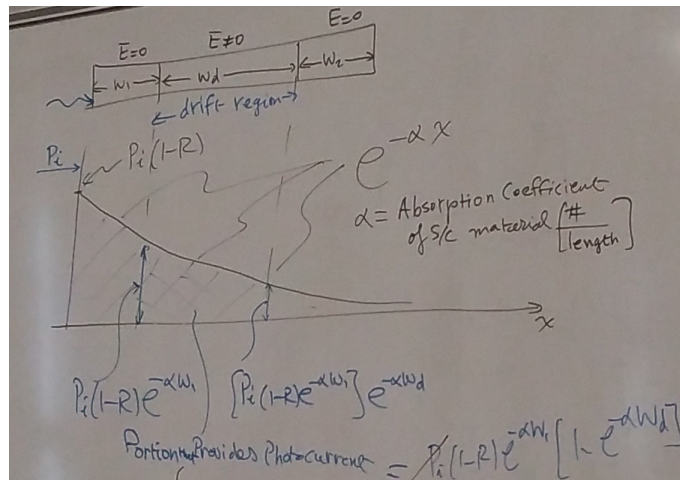 E=0 E≠0 E=0
W₁ Wd W₂
drift region
Pi Pi(1-R) e^{-αx}
α = Absorption Coefficient
of S/C material [#/length]
x
Pi(1-R)e^{-αW₁} [Pi(1-R)e^{-αW₁}]e^{-αWd}
Portion Provides Photocurrent = Pi(1-R)e^{-αW₁}[1-e^{-αWd}]